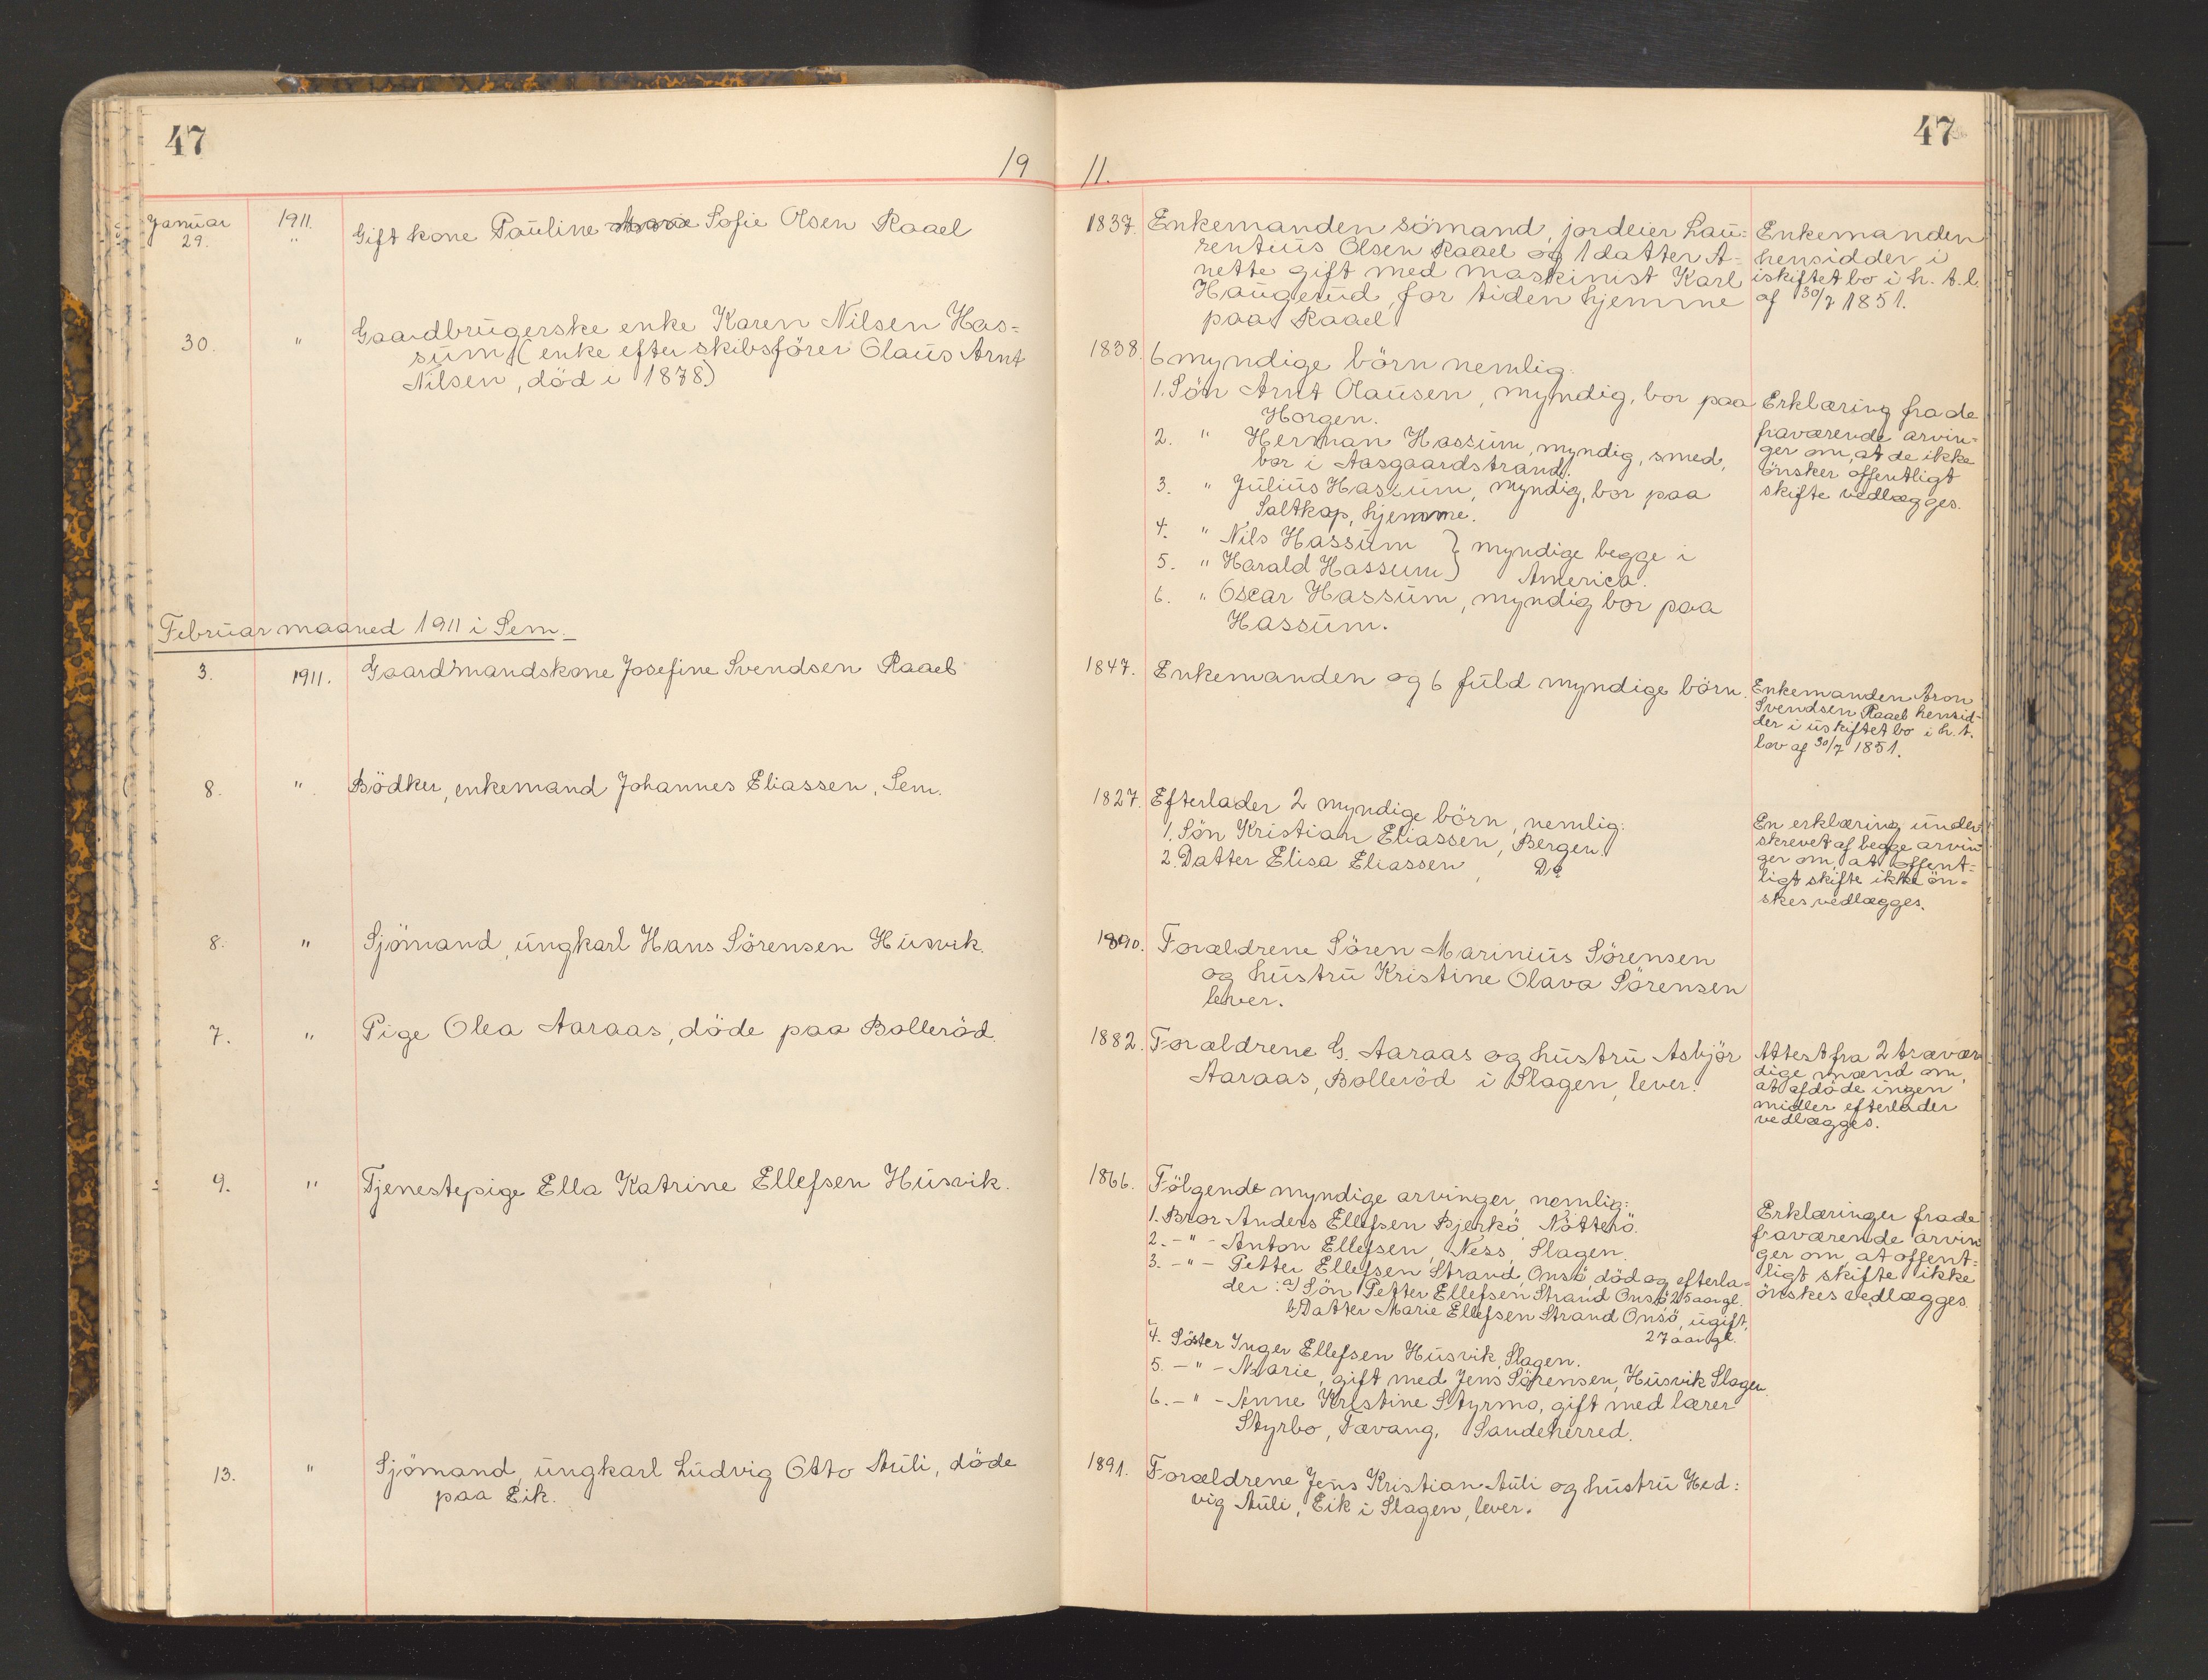 47
19
Januar 1911. Gift kone Pauline Sofie Olsen Raael
29. "
30. " Gaardbrugerske enke Karen Nilsen Has=
sum (enke efter skibsförer Olaus Arnt
Nilsen, död i 1878.)
Februar maaned 1911 i Sem.
3. 1911. Gaardmandskone Josefine Svendsen Raael
8. " Bödker, enkemand Johannes Eliassen, Sem.
8. " Sjömand, ungkarl Hans Sörensen Husvik.
7. " Pige Olea Aaraas, döde paa Bolleröd.
9. " Tjenestepige Ella Katrine Ellefsen Husvik.
13. " Sjömand, ungkarl Ludvig Otto Auli, döde
paa Eik.
47
11.
1837. Enkemanden sömand, jordeier Lau=
rentius Olsen Raael og 1 datter A-
nette gift med maskinist Karl
Haugerud, for tiden hjemme
paa Raael
Enkemanden
hensidder i
iskiftet bo i h. t. l.
af 30/7 1851.
1838. 6 myndige börn nemlig:
1. Sön Arnt Olausen, myndig, bor paa
Horgen.
2. " Herman Hassum, myndig, smed,
bor i Aasgaardstrand.
3. " Julius Hassum, myndig, bor paa
Saltkop, hjemme.
4. " Nils Hassum } myndige begge i
5. " Harald Hassum } America.
6. " Oscar Hassum, myndig bor paa
Hassum.
Erklæring fra de
fraværende arvin=
ger om, at de ikke
önsker offentligt
skifte vedlægges.
1847. Enkemanden og 6 fuld myndige börn.
Enkemanden Aron
Svendsen Raael hensid-
der i uskiftet bo i h. t.
lov af 30/7 1851.
1827. Efterlader 2 myndige börn, nemlig:
1. Sön Kristian Eliassen, Bergen.
2. Datter Elisa Eliassen, Do
En erklæring under
skrevet af begge arvin
ger om, at offent=
ligt skifte ikke ön=
skes vedlægges.
1890. Forældrene Sören Marinius Sörensen
og hustru Kristine Olava Sörensen
lever.
1882. Forældrene G. Aaraas og hustru Asbjör
Aaraas, Bolleröd i Slagen, lever.
Attest fra 2 trovær
dige mænd om,
at afdöde ingen
midler efterlader
vedlægges.
1866. Fölgende myndige arvinger, nemlig:
1. Bror Anders Ellefsen Bjerkö, Nötterö.
2. -"- Anton Ellefsen, Ness, Slagen.
3. -"- Petter Ellefsen Strand, Onsö, död og efterla=
der: a) Sön Petter Ellefsen Strand Onsö 25 aar gl.
b) Datter Marie Ellefsen Strand Onsö, ugift,
27 aar gl.
4. Söster Inger Ellefsen Husvik, Slagen.
5. -"- Marie, gift med Jens Sörensen, Husvik Slagen.
6. -"- Anne Kristine Styrmo, gift med lærer
Styrbo, Tævang, Sandeherred.
Erklæringer fra de
fraværende arvin
ger om, at offent=
ligt skifte ikke
önskes vedlægges.
1891. Forældrene Jens Kristian Auli og hustru Hed=
vig Auli, Eik i Slagen, lever.